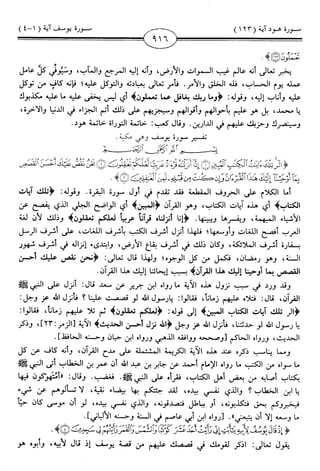 سورة هود آية (١٢٣)
سورة يوسف آية (١-٤)
٩١٦
تَعْمَلُونَ﴾.
يخبر تعالى أنه عالم غيب السموات والأرض، وأنه إليه المرجع والمآب، وسَيُوفي كلَّ عامل
عمله يوم الحساب، فله الخلق والأمر. فأمر تعالى بعبادته والتوكل عليه؛ فإنه كافٍ من توكل
عليه وأناب إليه، وقوله: ﴿وما ربك بغافل عما تعملون﴾ أي ليس يخفى عليه ما عليه مكذبوك
يا محمد، بل هو عليم بأحوالهم وأقوالهم وسيجزيهم على ذلك أتم الجزاء في الدنيا والآخرة،
وسينصرك وحزبك عليهم في الدارين. وقال كعب: خاتمة التوراة خاتمة هود.
تفسير سورة يوسف وهي مكية.
أما الكلام على الحروف المقطعة فقد تقدم في أول سورة البقرة. وقوله: ﴿تلك آيات
الكتاب﴾ أي هذه آيات الكتاب، وهو القرآن ﴿المبين﴾ أي الواضح الجلي الذي يفصح عن
الأشياء المبهمة، ويفسرها ويبينها. ﴿إنا أنزلناه قرآناً عربياً لعلكم تعقلون﴾ وذلك لأن لغة
العرب أفصح اللغات وأوسعها؛ فلهذا أنزل أشرف الكتب بأشرف اللغات، على أشرف الرسل
بسفارة أشرف الملائكة، وكان ذلك في أشرف بقاع الأرض، وابتدىء إنزاله في أشرف شهور
السنة، وهو رمضان، فكمل من كل الوجوه؛ ولهذا قال تعالى: ﴿نحن نقص عليك أحسن
القصص بما أوحينا إليك هذا القرآن﴾ بسبب إيحائنا إليك هذا القرآن.
وقد ورد في سبب نزول هذه الآية ما رواه ابن جرير عن سعد قال: أنزل على النبي ﷺ
القرآن، قال: فتلاه عليهم زماناً، فقالوا: يارسول الله لو قصصت علينا؟ فأنزل الله عز وجل:
﴿الر تلك آيات الكتاب المبين﴾ إلى قوله: ﴿لعلكم تعقلون﴾ ثم تلا عليهم زماناً، فقالوا:
يا رسول الله لو حدثتنا، فأنزل الله عز وجل ﴿الله نزل أحسن الحديث﴾ الآية [الزمر:٢٣]، وذكر
الحديث، ورواه الحاكم [وصححه ووافقه الذهبي ورواه ابن حبان وحسنه الحافظ].
ومما يناسب ذكره عند هذه الآية الكريمة المشتملة على مدح القرآن، وأنه كاف عن كل
ما سواه من الكتب ما رواه الإمام أحمد عن جابر بن عبد الله أن عمر بن الخطاب أتى النبي ﷺ
بكتاب أصابه من بعض أهل الكتاب، فقرأه على النبي ﷺ، فغضب. وقال: «أمتهوكون فيها
يا ابن الخطاب؟ والذي نفسي بيده، لقد جئتكم بها بيضاء نقية، لا تسألوهم عن شيء
فيخبروكم بحق فتكذبونه، أو بباطل فتصدقونه، والذي نفسي بيده، لو أن موسى كان حيّاً
ما وسعه إلا أن يتبعني». [رواه ابن أبي عاصم في السنة وحسنه الألباني].
يقول تعالى: اذكر لقومك في قصصك عليهم من قصة يوسف إذ قال لأبيه، وأبوه هو